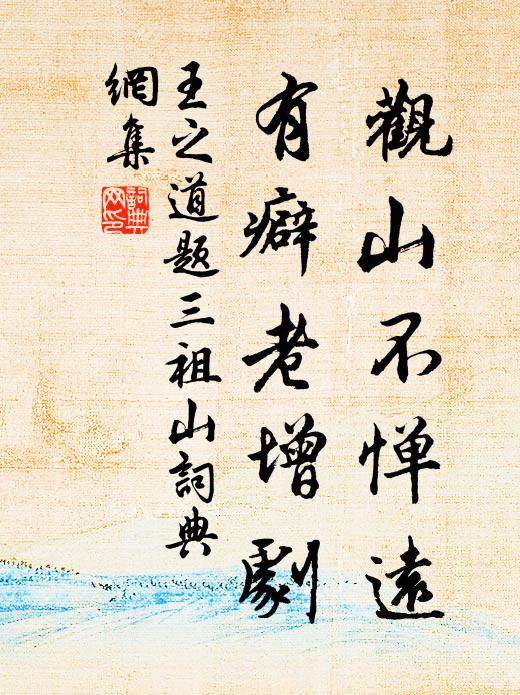 觀山不惮遠
有癖老增劇
王之道題三祖山詞典
網集
詞典
网印